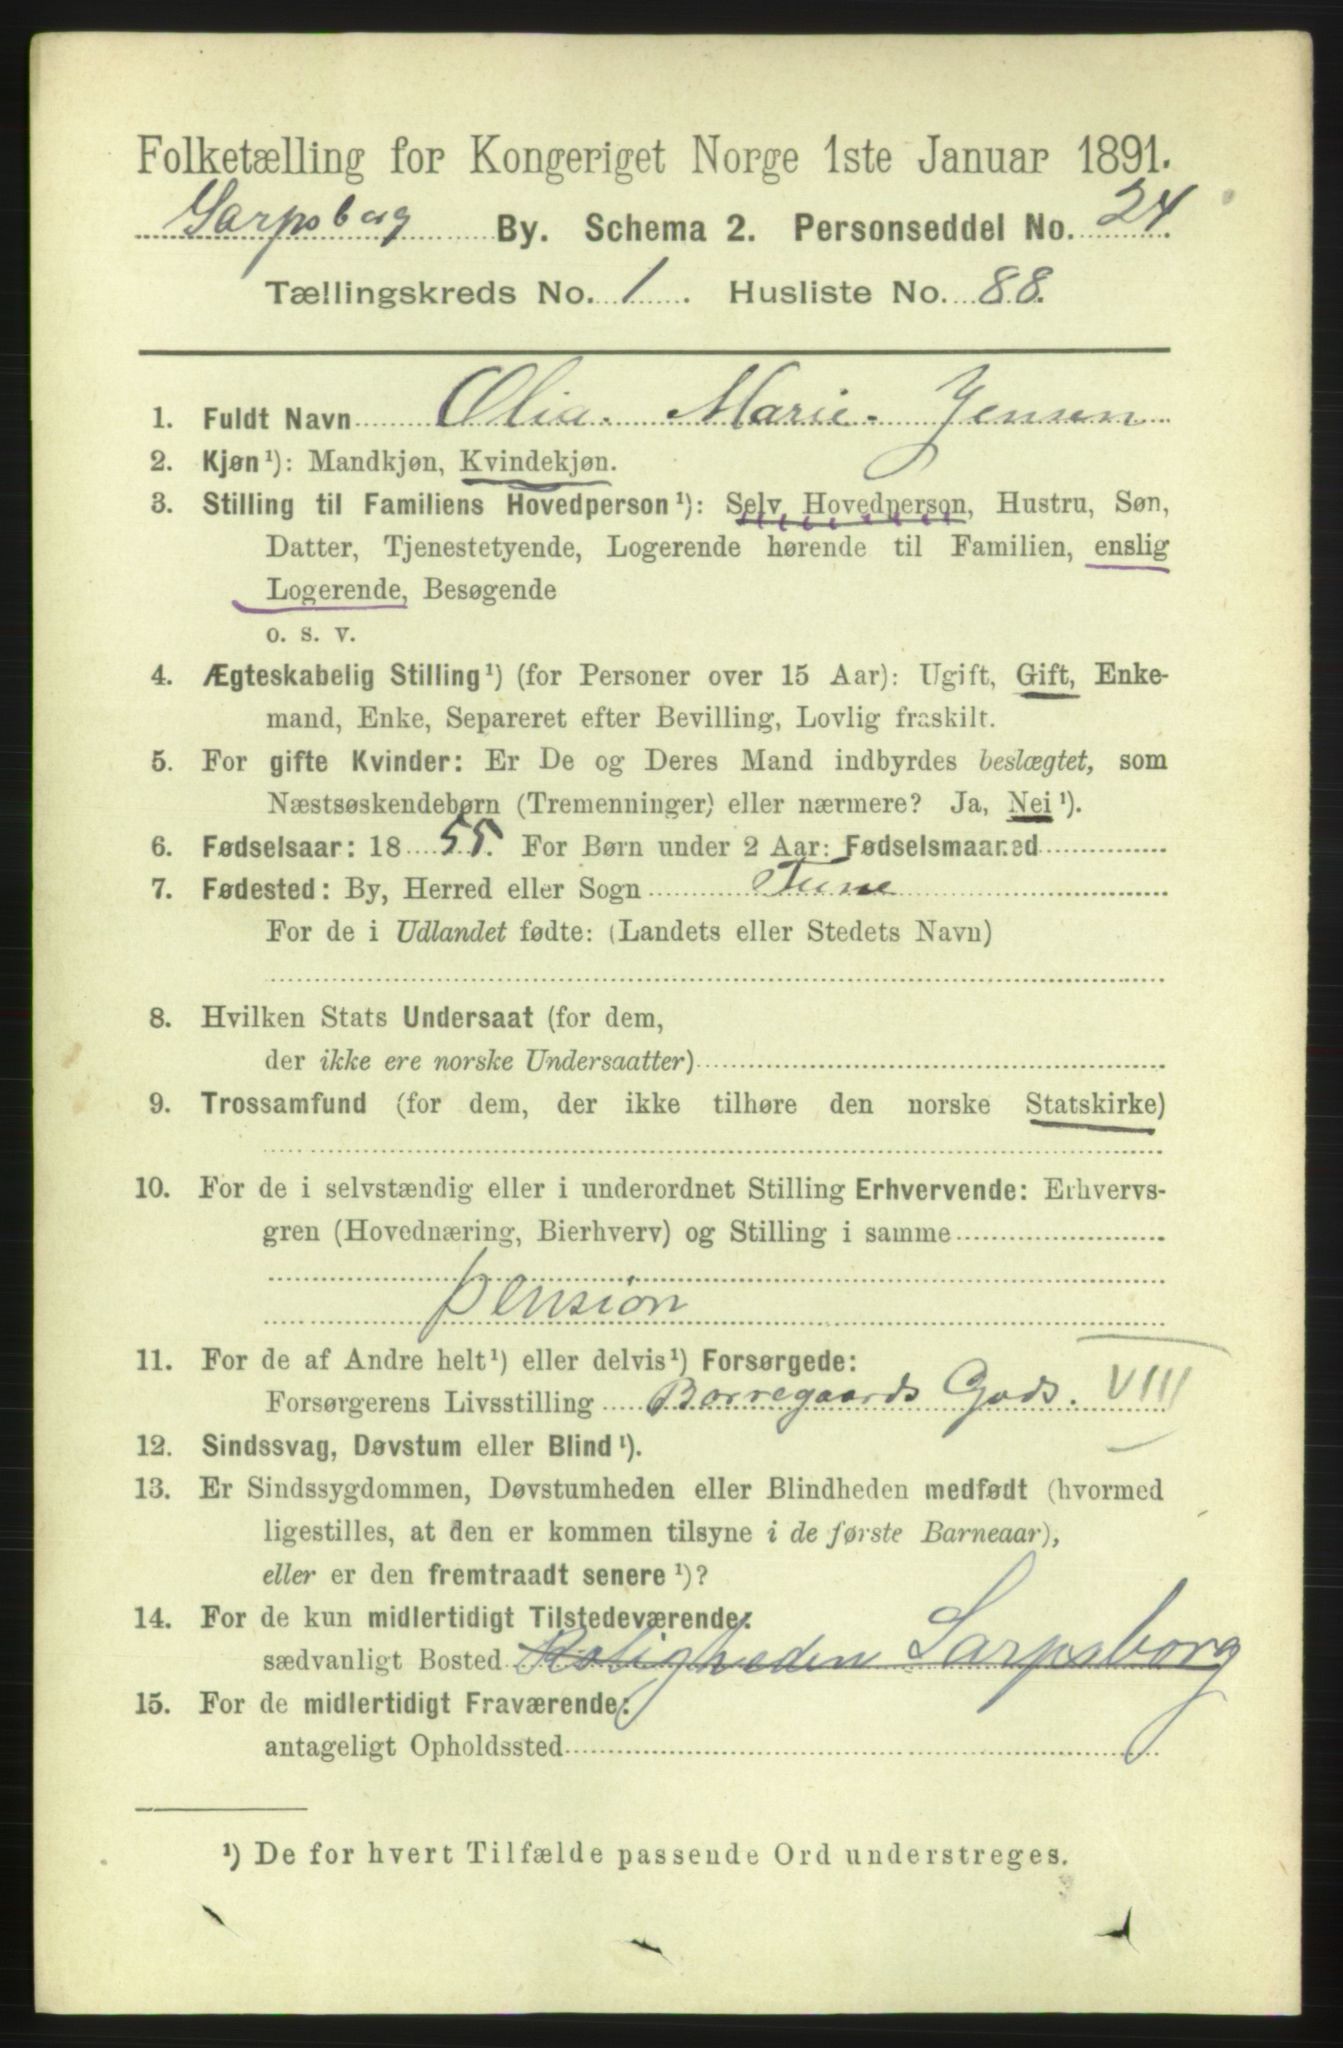 Folketælling for Kongeriget Norge 1ste Januar 1891.
Sarpsborg By. Schema 2. Personseddel No. 24.
Tællingskreds No. 1. Husliste No. 88.
1. Fuldt Navn Olia Marie Jensen
2. Kjøn¹): Mandkjøn, Kvindekjøn.
3. Stilling til Familiens Hovedperson¹): Selv Hovedperson, Hustru, Søn,
Datter, Tjenestetyende, Logerende hørende til Familien, enslig
Logerende, Besøgende
o. s. v.
4. Ægteskabelig Stilling¹) (for Personer over 15 Aar): Ugift, Gift, Enke-
mand, Enke, Separeret efter Bevilling, Lovlig fraskilt.
5. For gifte Kvinder: Er De og Deres Mand indbyrdes beslægtet, som
Næstsøskendebørn (Tremenninger) eller nærmere? Ja, Nei¹).
6. Fødselsaar: 1855. For Børn under 2 Aar: Fødselsmaaned
7. Fødested: By, Herred eller Sogn Tune
For de i Udlandet fødte: (Landets eller Stedets Navn)
8. Hvilken Stats Undersaat (for dem,
der ikke ere norske Undersaatter)
9. Trossamfund (for dem, der ikke tilhøre den norske Statskirke)
10. For de i selvstændig eller i underordnet Stilling Erhvervende: Erhvervs-
gren (Hovednæring, Bierhverv) og Stilling i samme
pension
11. For de af Andre helt¹) eller delvis¹) Forsørgede:
Forsørgerens Livsstilling Borregaards Gods. VIII
12. Sindssvag, Døvstum eller Blind¹).
13. Er Sindssygdommen, Døvstumheden eller Blindheden medfødt (hvormed
ligestilles, at den er kommen tilsyne i de første Barneaar),
eller er den fremtraadt senere¹)?
14. For de kun midlertidigt Tilstedeværende:
sædvanligt Bosted Roligheden Sarpsborg
15. For de midlertidigt Fraværende:
antageligt Opholdssted
¹) De for hvert Tilfælde passende Ord understreges.